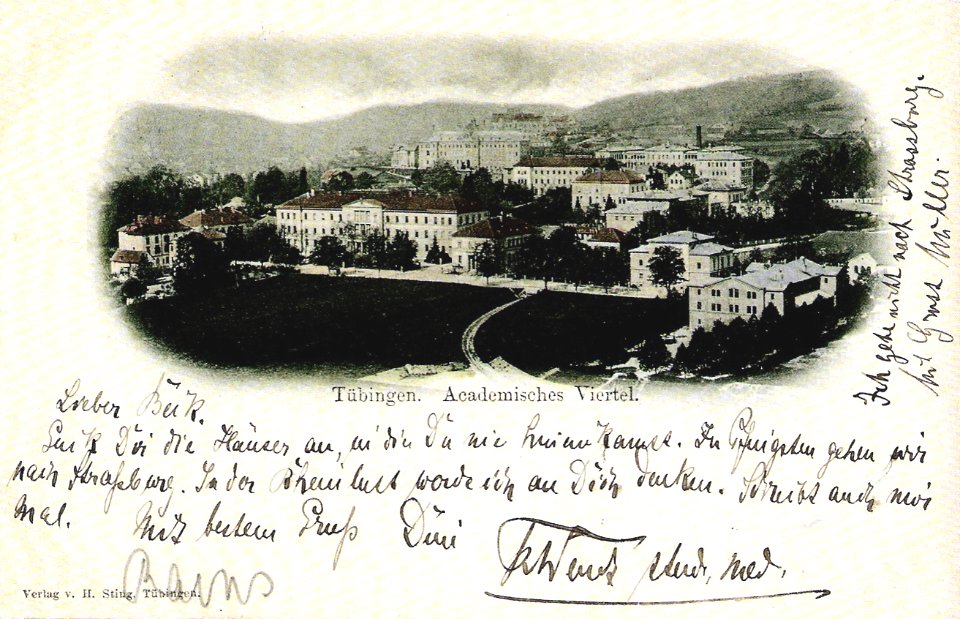 Tübingen. Academisches Viertel.
Lieber Beik.
Guck Dir die Häuser an, in die Du nie hineinkamst. Zu Pfingsten gehen wir
nach Straßburg. In der Rheinlust werde ich an Dich denken. Schreibt auch mir
mal. Mit bestem Gruß Dein
stud. med.
Ich gehe nicht nach Strassburg.
mit Gruss Müller.
Verlag v. H. Sting, Tübingen.